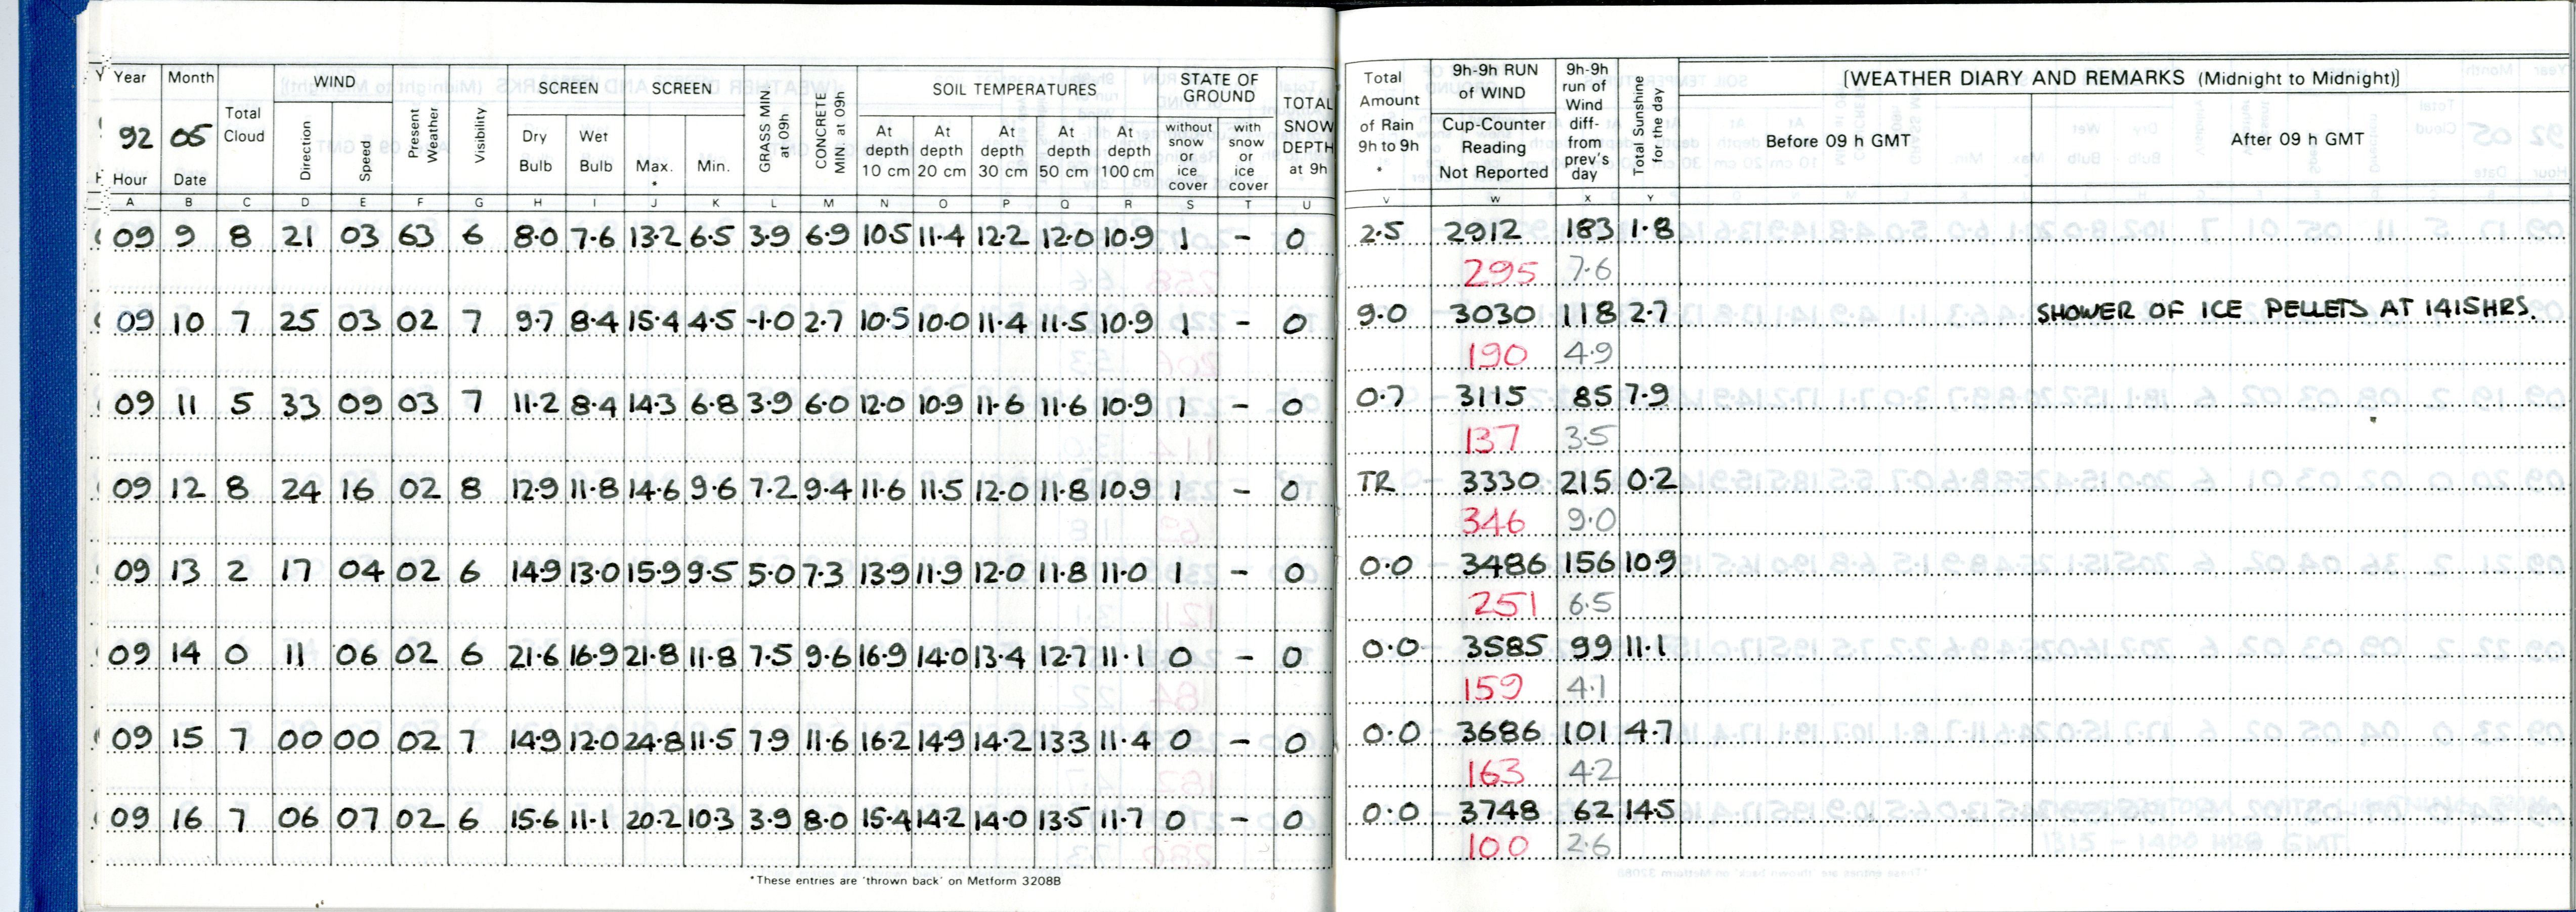 Year Month WIND SCREEN SCREEN SOIL TEMPERATURES STATE OF GROUND
92 05 Total Cloud Direction Speed Present Weather Visibility Dry Bulb Wet Bulb Max. * Min. GRASS MIN at 09h CONCRETE MIN at 09h At depth 10 cm At depth 20 cm At depth 30 cm At depth 50 cm At depth 100 cm without snow or ice cover with snow or ice cover TOTAL SNOW DEPTH at 9h
Hour Date
Total Amount of Rain 9h to 9h * 9h-9h RUN of WIND Cup-Counter Reading Not Reported 9h-9h run of Wind diff- from prev's day Total Sunshine for the day [WEATHER DIARY AND REMARKS (Midnight to Midnight)]
Before 09 h GMT After 09 h GMT
A B C D E F G H I J K L M N O P Q R S T U V W X Y
09 9 8 21 03 63 6 8.0 7.6 13.2 6.5 3.9 6.9 10.5 11.4 12.2 12.0 10.9 1 - 0 2.5 2912 183 1.8
295 7.6
09 10 7 25 03 02 7 9.7 8.4 15.4 4.5 -1.0 2.7 10.5 10.0 11.4 11.5 10.9 1 - 0 9.0 3030 118 2.7 SHOWER OF ICE PELLETS AT 1415HRS.
190 4.9
09 11 5 33 09 03 7 11.2 8.4 14.3 6.8 3.9 6.0 12.0 10.9 11.6 11.6 10.9 1 - 0 0.7 3115 85 7.9
137 3.5
09 12 8 24 16 02 8 12.9 11.8 14.6 9.6 7.2 9.4 11.6 11.5 12.0 11.8 10.9 1 - 0 TR 3330 215 0.2
346 9.0
09 13 2 17 04 02 6 14.9 13.0 15.9 9.5 5.0 7.3 13.9 11.9 12.0 11.8 11.0 1 - 0 0.0 3486 156 10.9
251 6.5
09 14 0 11 06 02 6 21.6 16.9 21.8 11.8 7.5 9.6 16.9 14.0 13.4 12.7 11.1 0 - 0 0.0 3585 99 11.1
159 4.1
09 15 7 00 00 02 7 14.9 12.0 24.8 11.5 7.9 11.6 16.2 14.9 14.2 13.3 11.4 0 - 0 0.0 3686 101 4.7
163 4.2
09 16 7 06 07 02 6 15.6 11.1 20.2 10.3 3.9 8.0 15.4 14.2 14.0 13.5 11.7 0 - 0 0.0 3748 62 14.5
100 2.6
*These entries are 'thrown back' on Metform 3208B